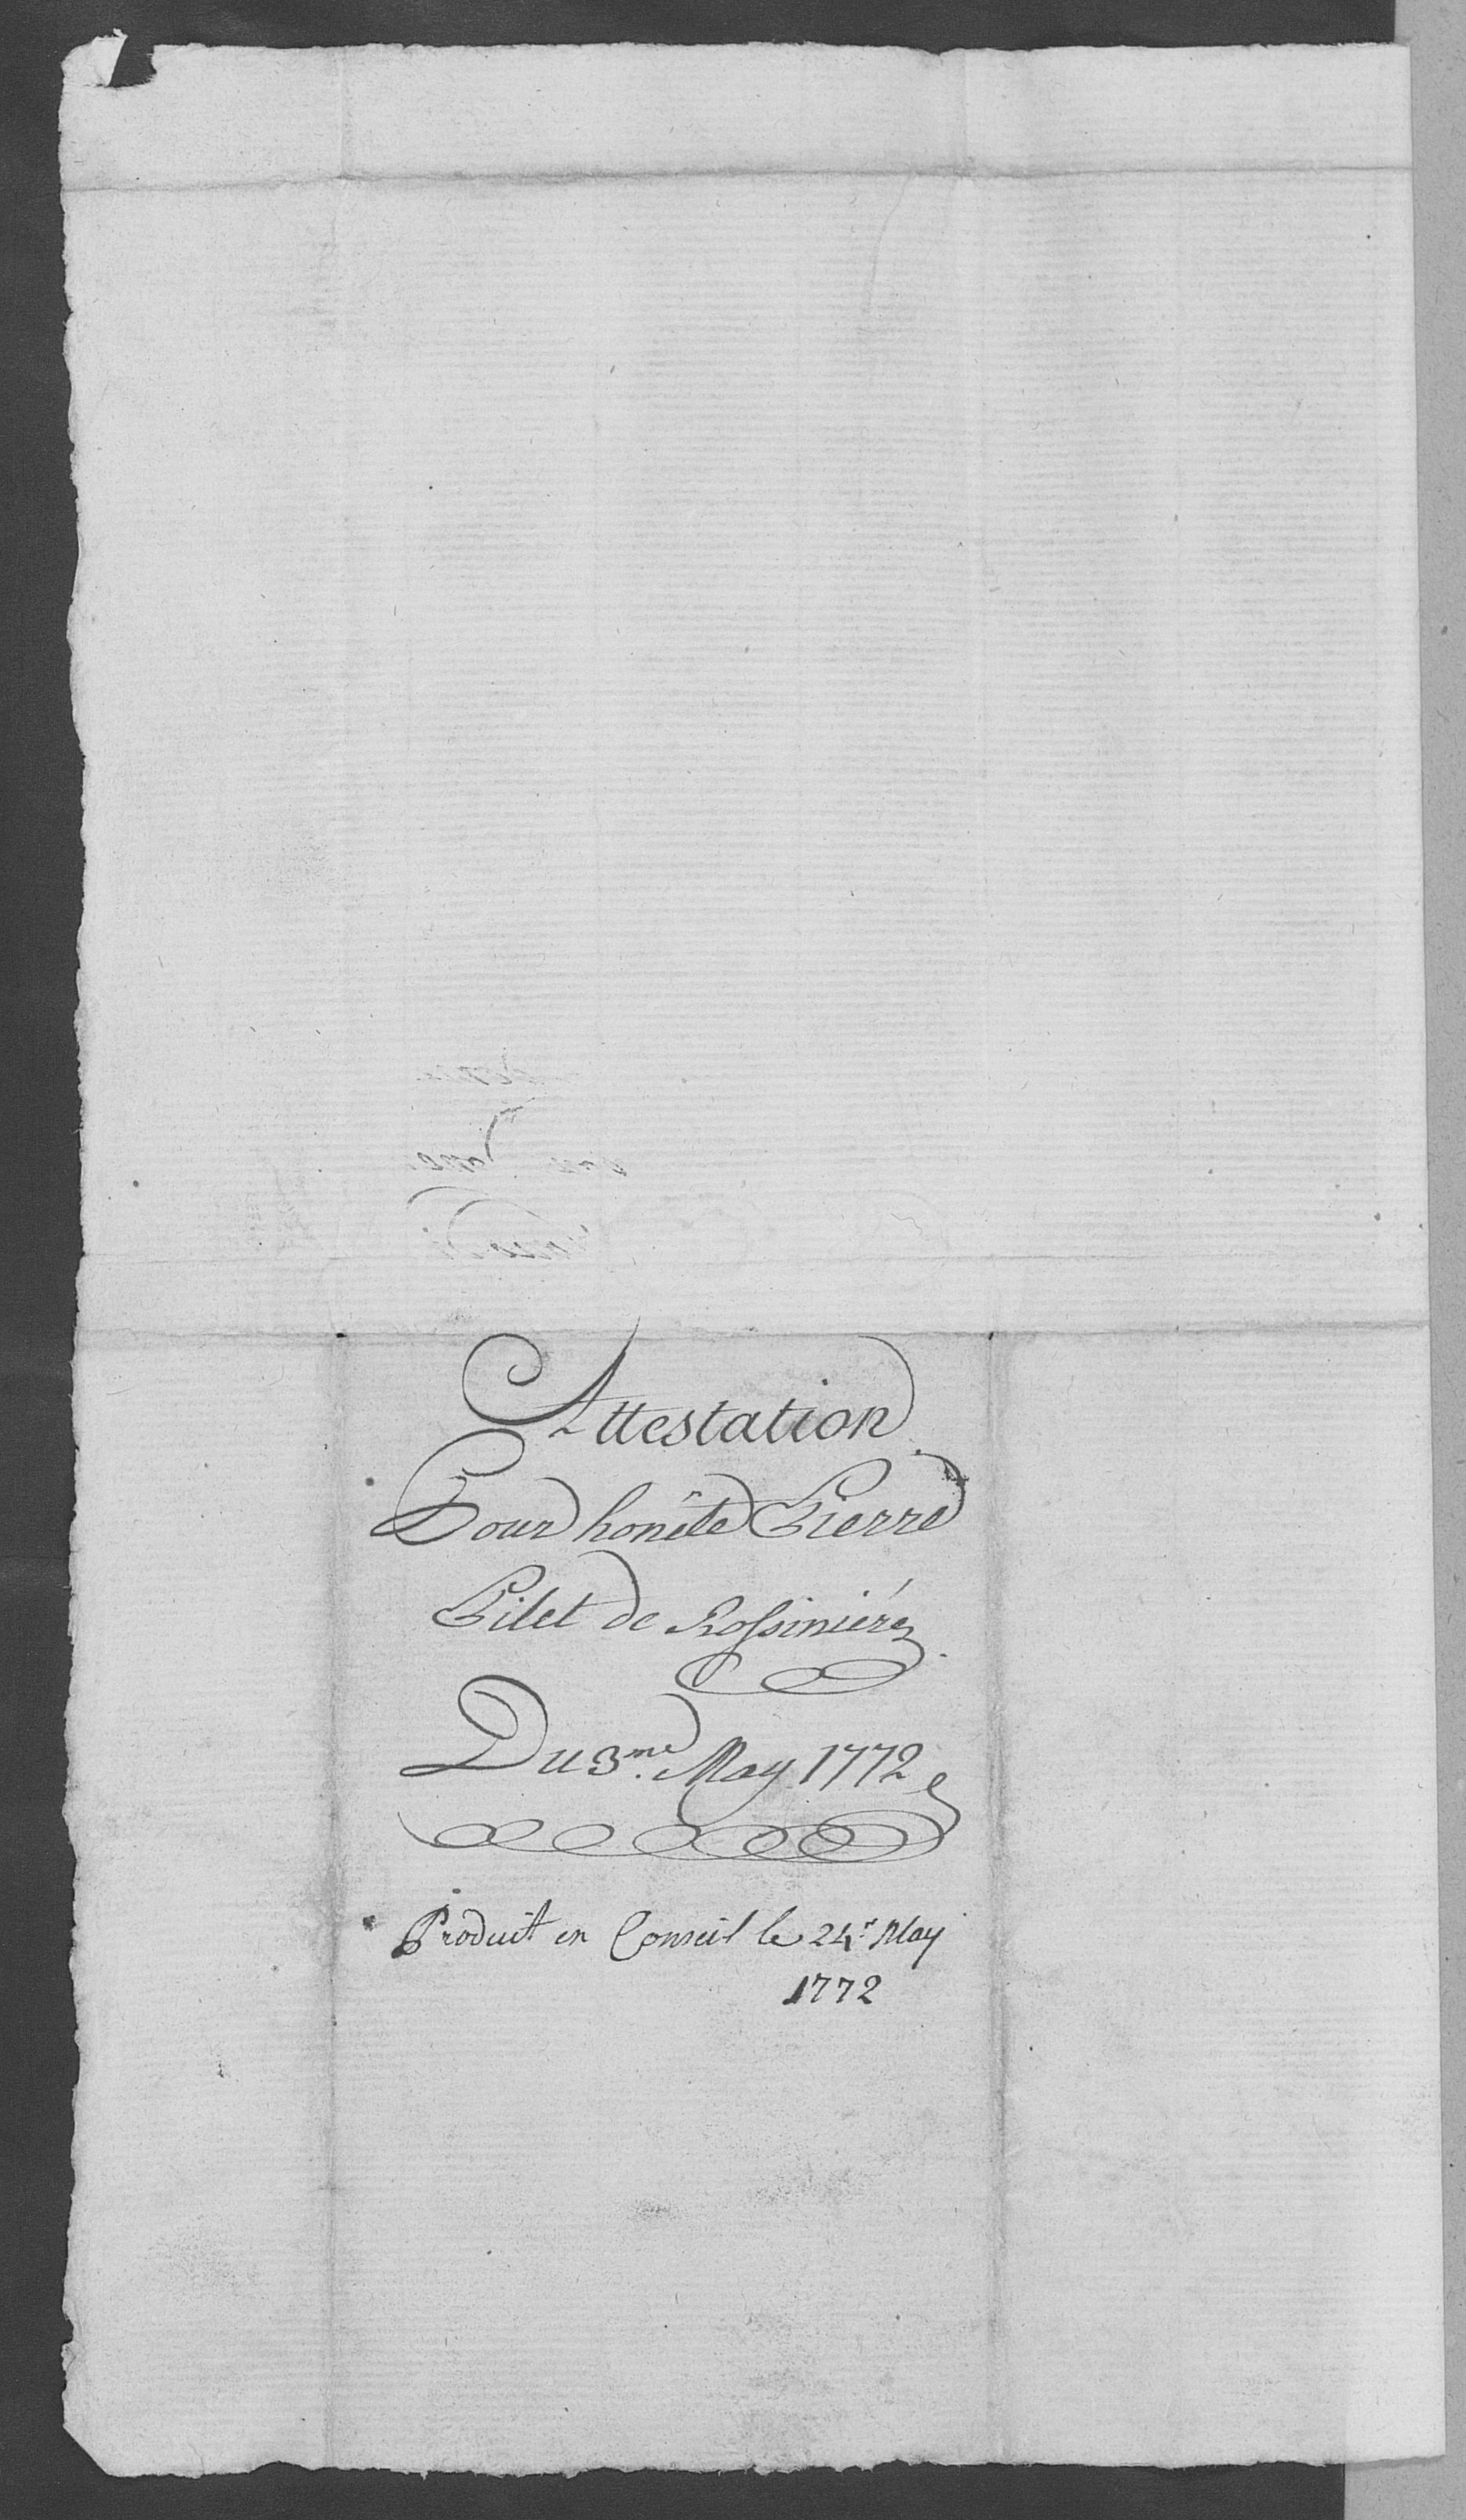 Attestation
Pour honête Pierre
Pilet de Rossiniére
Du 3.me May 1772
Produit en Conseil le 24e May
1772